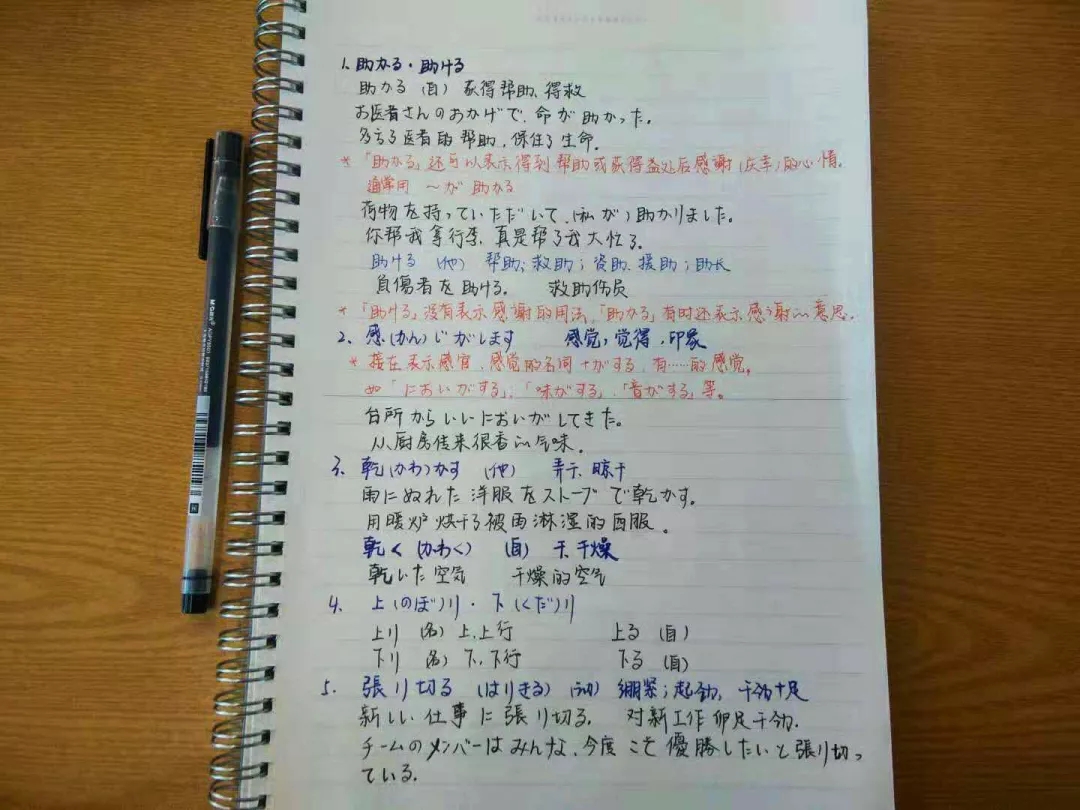 1. 助かる・助ける
助かる (自) 获得帮助、得救
お医者さんのおかげで、命が助かった。
多亏了医者的帮助,保住了生命.
*「助かる」还可以表示得到帮助或获得益处后感谢(庆幸)的心情。
通常用 ～が助かる
荷物を持っていただいて、(私が)助かりました。
你帮我拿行李,真是帮了我大忙了.
助ける (他) 帮助;救助;资助、援助;助长
負傷者を助ける. 救助伤员
*「助ける」没有表示感谢的用法,「助かる」有时还表示感谢的意思.
2. 感(かん)じがします 感觉,觉得,印象
* 接在表示感官、感觉的名词+がする,有……的感觉.
如「においがする」;「味がする」、「音がする」等。
台所からいいにおいがしてきた。
从厨房传来很香的气味.
3. 乾(かわ)かす (他) 弄干、晾干
雨にぬれた洋服をストーブで乾かす。
用暖炉烘干了被雨淋湿的西服.
乾く(かわく) (自) 干、干燥
乾いた空気 干燥的空气
4. 上(のぼ)り・下(くだ)り
上り (名) 上、上行 上る (自)
下り (名) 下、下行 下る (自)
5. 張り切る (はりきる) (动) 绷紧;起劲,干劲十足
新しい仕事に張り切る. 对新工作卯足干劲.
チームのメンバーはみんな、今度こそ優勝したいと張り切っ
ている.
M&G